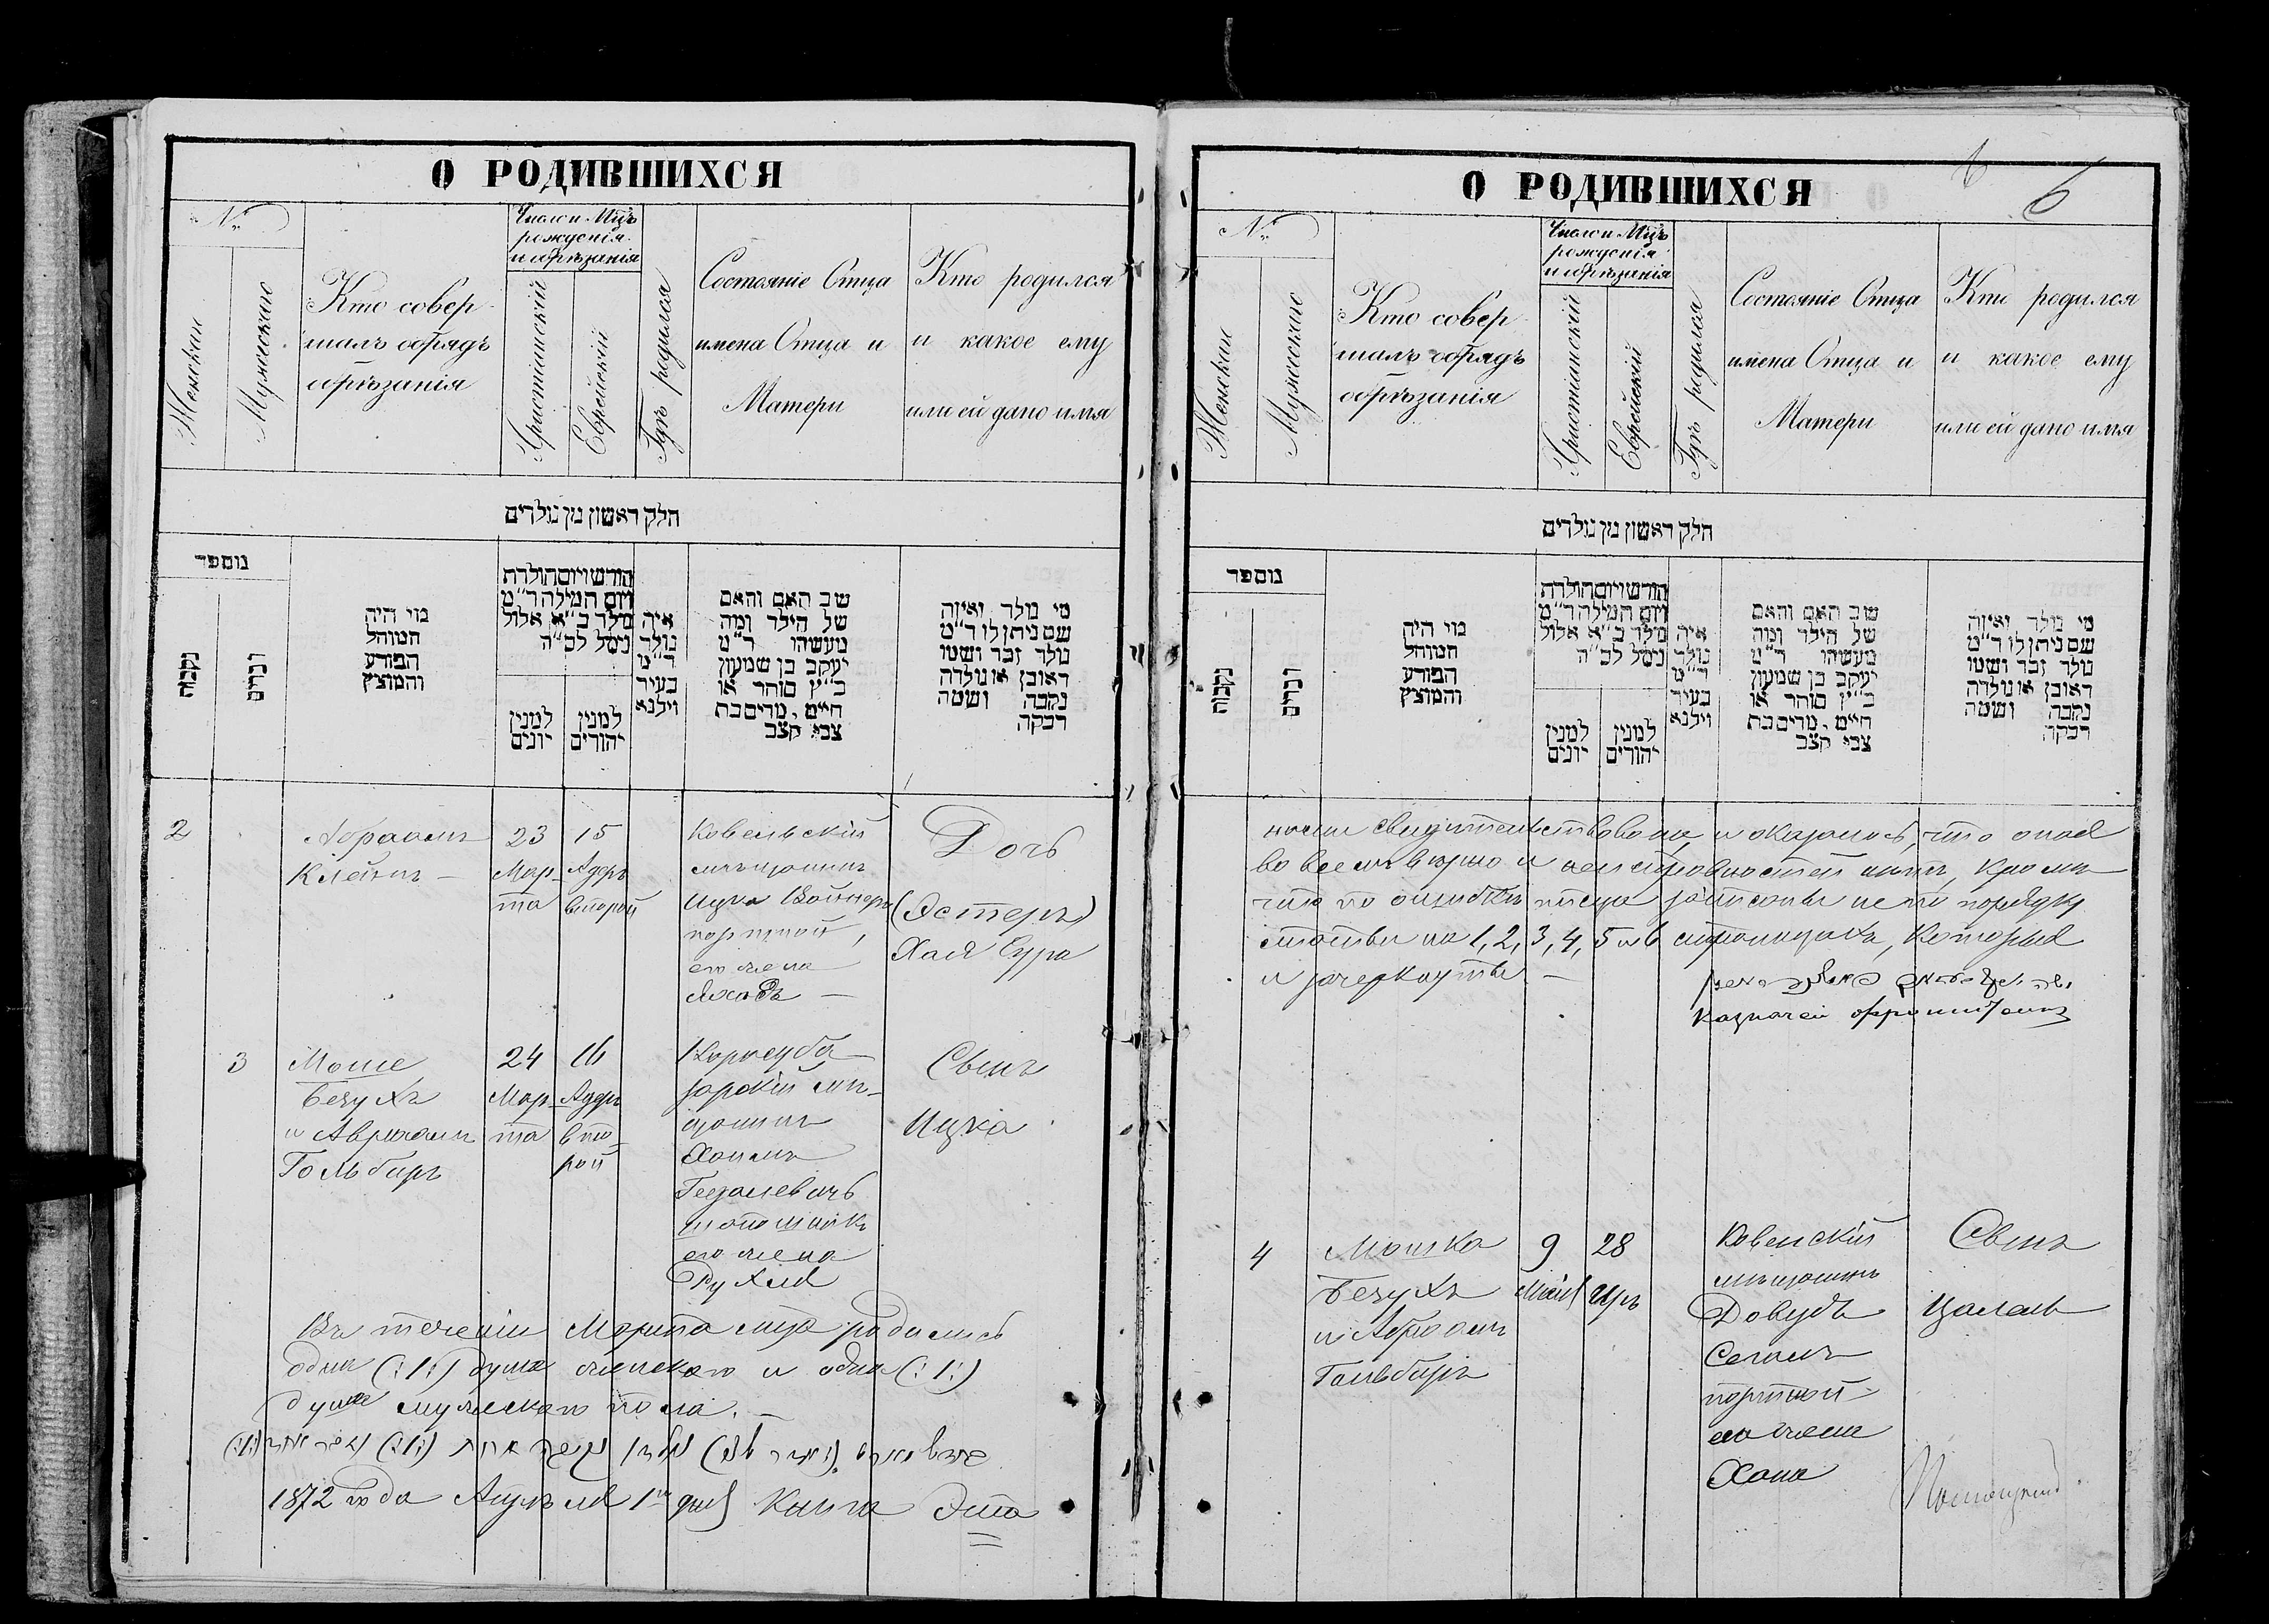 О РОДИВШИХСЯ
№
Женскаго
Мужескаго
Кто совер-
шалъ обрядъ
обрѣзанія
Число и Мцъ
рожденія
и обрѣзанія
Христіанскій
Еврейскій
Гдѣ родился
Состояніе Отца
имена Отца и
Матери
Кто родился
и какое ему
или ей дано имя
חלק ראשון מן נולדים
מספר
נקבות
זכרים
מי היה
המוהל
הפורע
והמוצץ
חודש ויום הולדת
ויום המילה ר"מ
נולד כ"א אלול
נימל לכ"ה
למנין
יונים
למנין
יהודים
איה
נולד
ר"מ
בעיר
וילנא
שב האם והאם
של הילד ומה
מעשהו ר"מ
יעקב בן שמעון
כ"ץ סוחר או
חייט, מרים בת
צבי קצב
מי נולד ואיזה
שם ניתן לו ר"מ
נולד זכר ושמו
ראובן או נולדה
נקבה ושמה
רבקה
2
Абраамъ
Клейнъ
23
Мар-
та
15
Адеръ
второй
Ковельскій
мѣщанинъ
Ицка Вайнеръ
портной,
его жена
Дочь
(Эстеръ)
Хая Сура
3
Моше
Безухъ
и Авраамъ
Гольбиръ
24
Мар-
та
16
Адеръ
вто-
рой
мѣ-
щанинъ
Хаимъ
Гедалевичъ
его жена
Рухля
Сынъ
Ицка
Въ теченіи Марта мца родились
одна (:1:) душа женскаго и одна (:1:)
душа мужескаго пола.
1872 года Апрѣля 1го дня Книга Эта
О РОДИВШИХСЯ
6
№
Женскаго
Мужескаго
Кто совер-
шалъ обрядъ
обрѣзанія
Число и Мцъ
рожденія
и обрѣзанія
Христіанскій
Еврейскій
Гдѣ родился
Состояніе Отца
имена Отца и
Матери
Кто родился
и какое ему
или ей дано имя
חלק ראשון מן נולדים
מספר
נקבות
זכרים
מי היה
המוהל
הפורע
והמוצץ
חודש ויום הולדת
ויום המילה ר"מ
נולד כ"א אלול
נימל לכ"ה
למנין
יונים
למנין
יהודים
איה
נולד
ר"מ
בעיר
וילנא
שב האם והאם
של הילד ומה
מעשהו ר"מ
יעקב בן שמעון
כ"ץ סוחר או
חייט, מרים בת
צבי קצב
מי נולד ואיזה
שם ניתן לו ר"מ
נולד זכר ושמו
ראובן או נולדה
נקבה ושמה
רבקה
нами свидѣтельствована, и оказалось, что оная
во всемъ вѣрно и неисправностей нѣтъ, кромѣ
что по ошибкѣ писца записаны не по порядку
статьи на 1, 2, 3, 4, 5 и 6 страницахъ, которыя
и зачеркнуты. –
Казначей
4
Мошка
Безухъ
и Абраамъ
Гольбиръ
9
Мая
28
Иръ
Ковенскій
мѣщанинъ
Довидъ
портной
его жена
Хана
Сынъ
Цалель